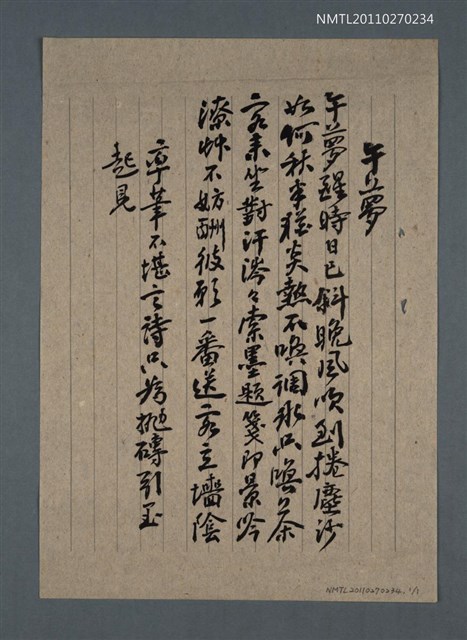 NMTL20110270234
午夢
午夢醒時日已斜晚風吹到捲塵沙
如何秋半猶炎熱不喚調冰只喚茶
客来坐對汗涔々索墨題箋即景吟
潦艸不妨酬彼願一番送客立墻陰
不堪言詩只為拋磚引玉
起見
NMTL20110270234. 1/1